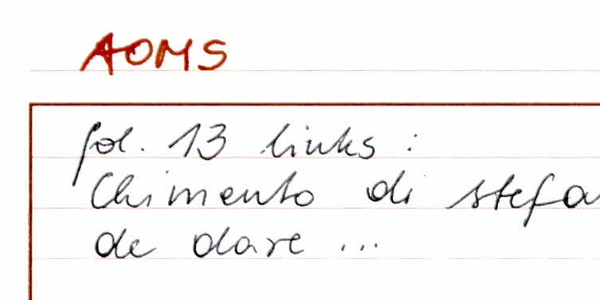 AOMS
fol. 13 links :
Chimento di stefa
de dare ...